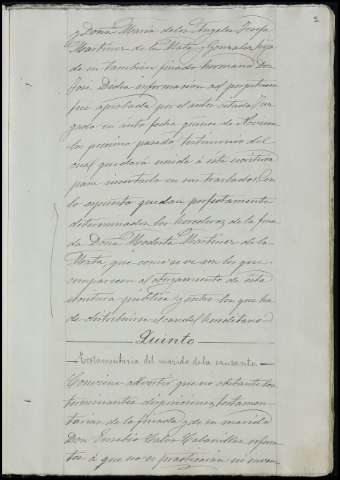 2
y Doña Maria de los Angeles Josefa
Martinez de la Mata y Gonzalez hija
de su tambien finado hermano Don
José. Dicha informacion ad perpetuam
fué aprobada por el antes citado Juz-
gado en auto fecha quince de Noviem-
bre proximo pasado, testimonio del
cual quedará unido á esta escritura
para insertarlo en sus traslados. Con
lo expuesto quedan perfectamente
determinados los herederos de la fina-
da Doña Modesta Martinez de la
Mata, que como se ve son los que
comparecen al otorgamiento de esta
escritura pública y entre los que ha
de distribuirse el caudal hereditario.
Quinto
Testamentaria del marido de la causante
Conviene advertir que no obstante las
terminantes disposiciones testamen-
tarias de la finada y de su marido
Don Eusebio Calvo Cabanillas, referen-
tes á que no se practicarán su inven-